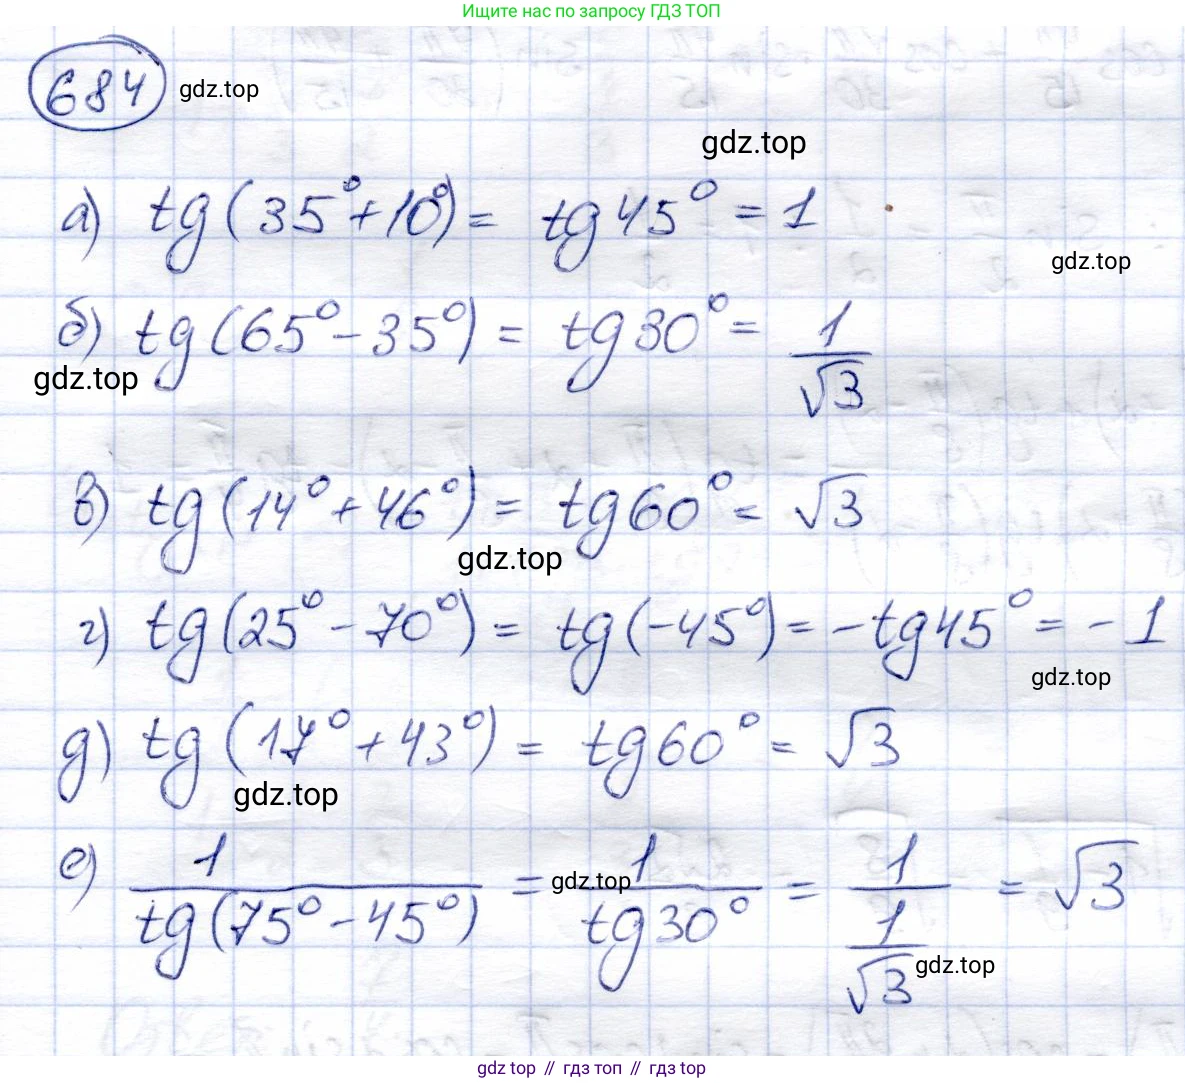 Ищите нас по запросу ГДЗ ТОП
684 gdz.top
gdz.top
а) tg(35°+10°) = tg45° = 1
gdz.top
б) tg(65°-35°) = tg30° = 1/√3
gdz.top
в) tg(14°+46°) = tg60° = √3
gdz.top
г) tg(25°-70°) = tg(-45°) = -tg45° = -1
gdz.top
д) tg(17°+43°) = tg60° = √3
gdz.top
е) 1/tg(75°-45°) = 1/tg30° = 1/(1/√3) = √3
gdz.top
gdz.top
gdz top // гдз топ // gdz.top